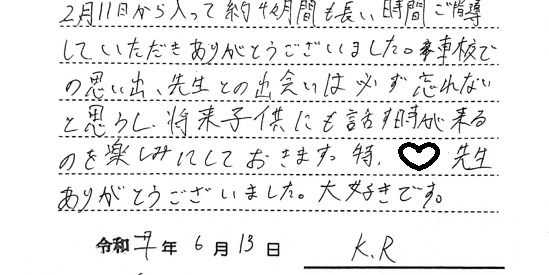 2月11日から入って約4ヶ月間も長い時間ご指導
していただきありがとうございました。車校で
の思い出、先生との出会いは必ず忘れない
と思うし、将来子供にも話す時が来る
のを楽しみにしておきます。特、先生
ありがとうございました。大好きです。
令和 年 6月13日 K.R